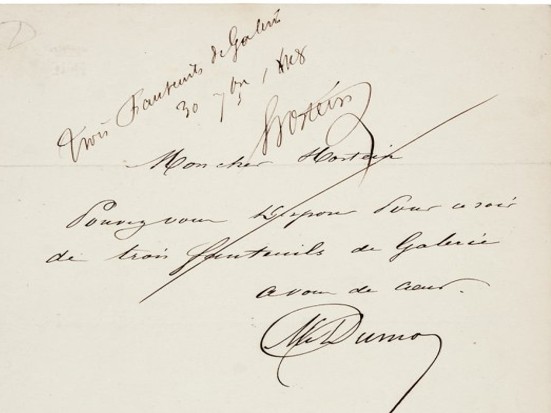 trois Fauteuils de Galerie
30 7bre
Hostein
Mon cher Hostein
Pouvez vous disposer pour ce soir
de trois fauteuils de Galerie
a vous de cœur.
Dumas